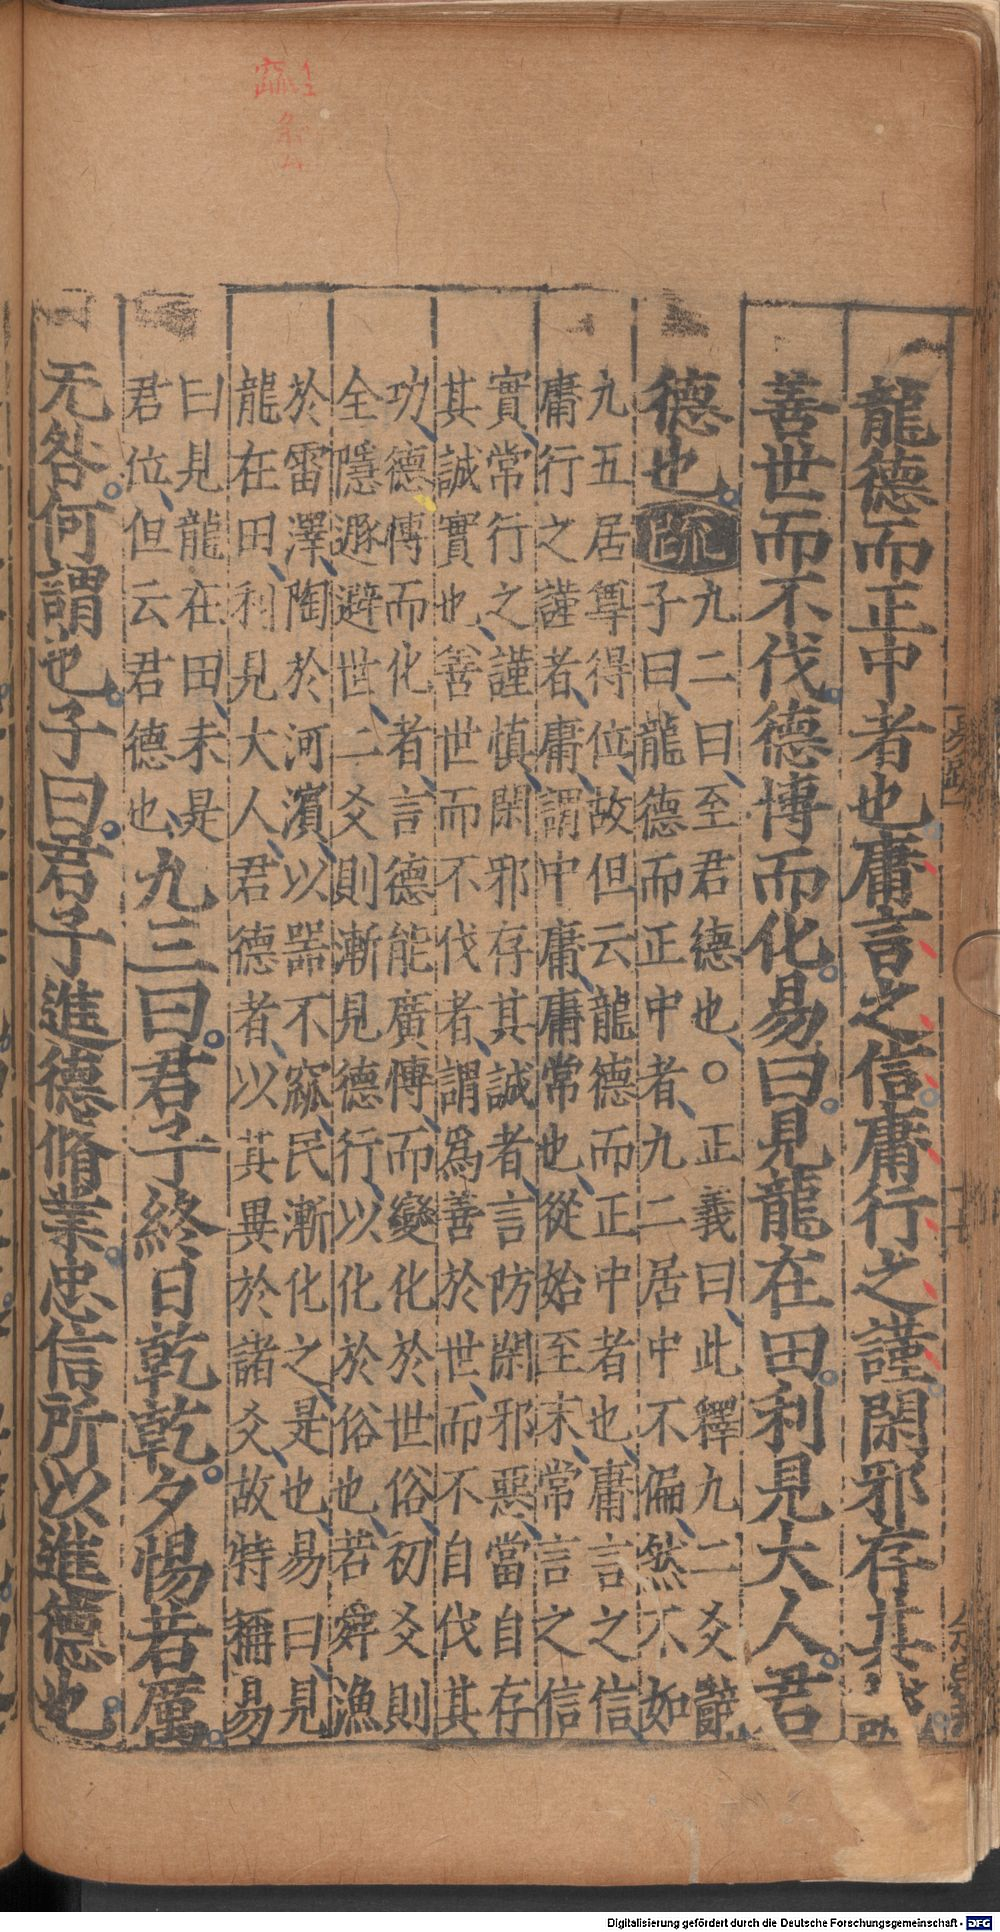 龍德而正中者也庸言之信庸行之謹閑邪存其誠
善世而不伐德博而化易曰見龍在田利見大人君
德也
疏
九二曰至君德也○正義曰此釋九二爻辭
子曰龍德而正中者九二居中不偏然不如
九五居尊得位故但云龍德而正中者也庸言之信
庸行之謹者庸謂中庸庸常也從始至末常言之信
實常行之謹慎閑邪存其誠者言防閑邪惡當自存
其誠實也善世而不伐者謂為善於世而不自伐其
功德博而化者言德能廣博而變化於世俗初爻則
全隱遯避世二爻則漸見德行以化於俗也若舜漁
於雷澤陶於河濱以器不窳民漸化之是也易曰見
龍在田利見大人君德者以其異於諸爻故特稱易
曰見龍在田未是
君位但云君德也
九三曰君子終日乾乾夕惕若厲
无咎何謂也子曰君子進德脩業忠信所以進德也
易疏
Digitalisierung gefördert durch die Deutsche Forschungsgemeinschaft - DFG